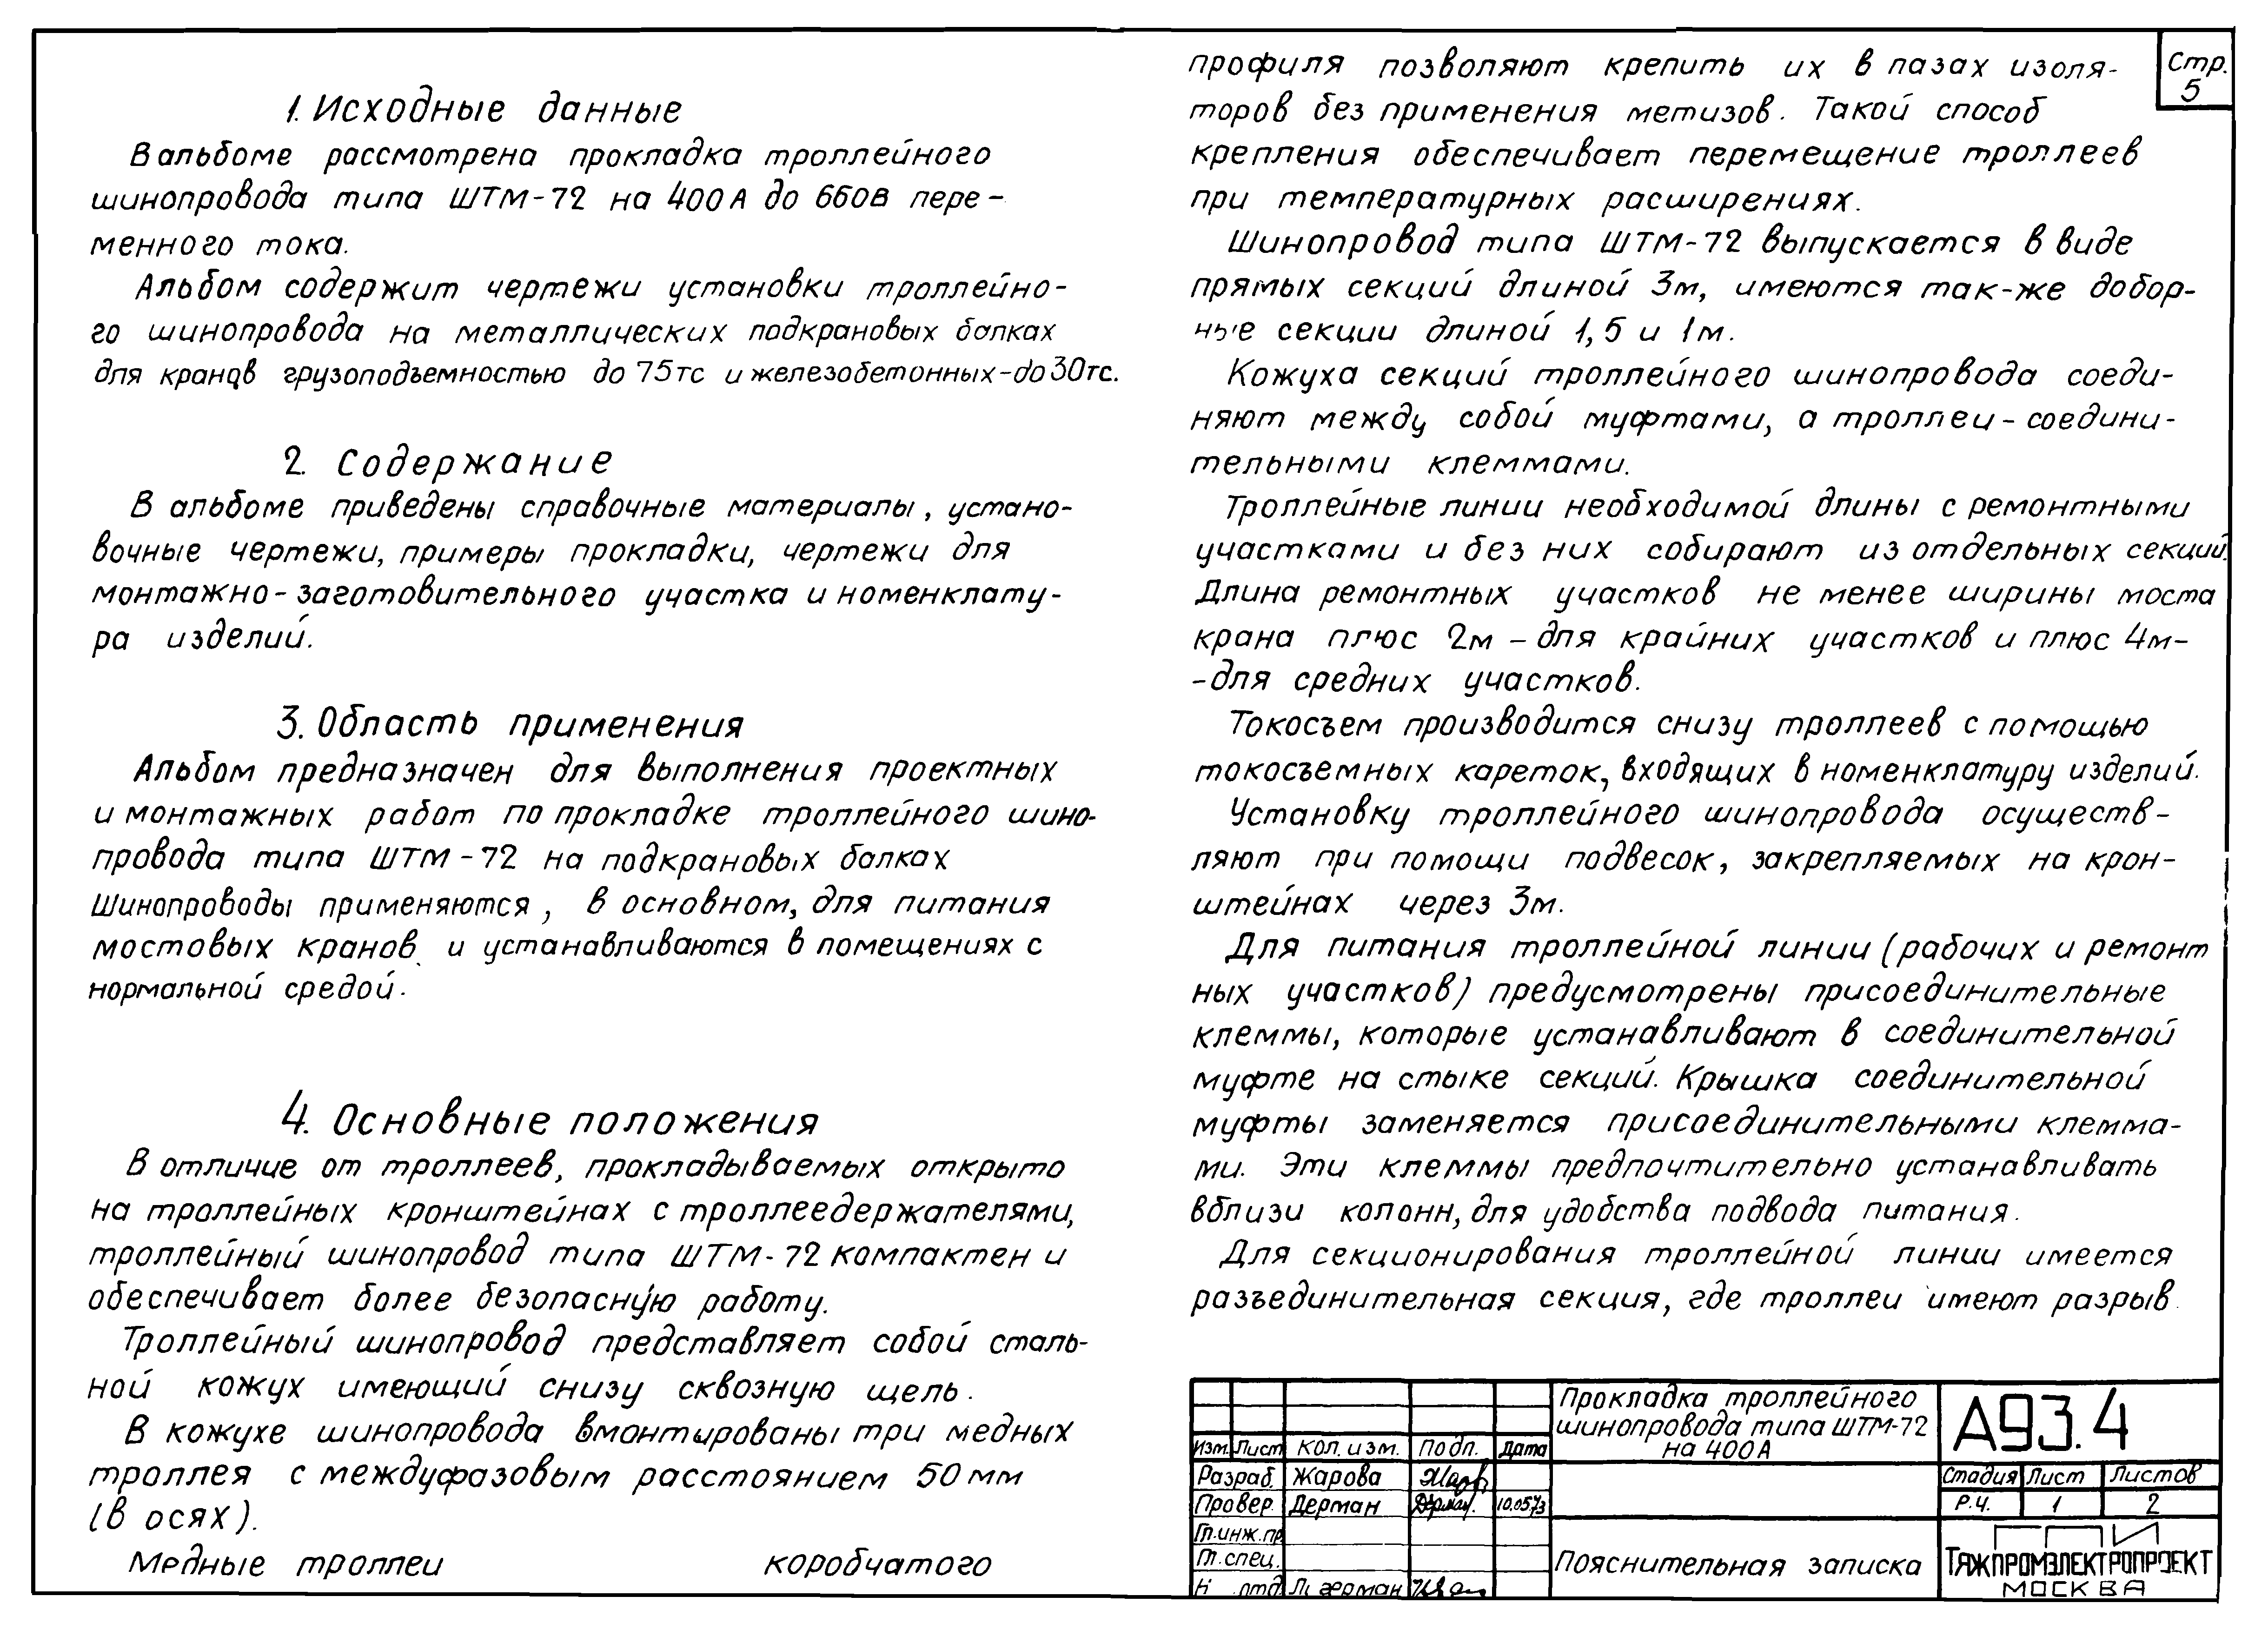 1. Исходные данные
В альбоме рассмотрена прокладка троллейного
шинопровода типа ШТМ-72 на 400А до 660В пере-
менного тока.
Альбом содержит чертежи установки троллейно-
го шинопровода на металлических подкрановых балках
для кранов грузоподъемностью до 75тс и железобетонных-до 30тс.
2. Содержание
В альбоме приведены справочные материалы, устано-
вочные чертежи, примеры прокладки, чертежи для
монтажно-заготовительного участка и номенклату-
ра изделий.
3. Область применения
Альбом предназначен для выполнения проектных
и монтажных работ по прокладке троллейного шино-
провода типа ШТМ-72 на подкрановых балках
Шинопроводы применяются, в основном, для питания
мостовых кранов и устанавливаются в помещениях с
нормальной средой.
4. Основные положения
В отличие от троллеев, прокладываемых открыто
на троллейных кронштейнах с троллеедержателями,
троллейный шинопровод типа ШТМ-72 компактен и
обеспечивает более безопасную работу.
Троллейный шинопровод представляет собой сталь-
ной кожух имеющий снизу сквозную щель.
В кожухе шинопровода вмонтированы три медных
троллея с междуфазовым расстоянием 50 мм
(в осях).
Медные троллеи коробчатого
профиля позволяют крепить их в пазах изоля-
торов без применения метизов. Такой способ
крепления обеспечивает перемещение троллеев
при температурных расширениях.
Шинопровод типа ШТМ-72 выпускается в виде
прямых секций длиной 3м, имеются так-же добор-
ные секции длиной 1,5 и 1м.
Кожуха секций троллейного шинопровода соеди-
няют между собой муфтами, а троллеи - соедини-
тельными клеммами.
Троллейные линии необходимой длины с ремонтными
участками и без них собирают из отдельных секций.
Длина ремонтных участков не менее ширины моста
крана плюс 2м - для крайних участков и плюс 4м-
-для средних участков.
Токосъем производится снизу троллеев с помощью
токосъемных кареток, входящих в номенклатуру изделий.
Установку троллейного шинопровода осуществ-
ляют при помощи подвесок, закрепляемых на крон-
штейнах через 3м.
Для питания троллейной линии (рабочих и ремонт
ных участков) предусмотрены присоединительные
клеммы, которые устанавливают в соединительной
муфте на стыке секций. Крышка соединительной
муфты заменяется присоединительными клемма-
ми. Эти клеммы предпочтительно устанавливать
вблизи колонн, для удобства подвода питания.
Для секционирования троллейной линии имеется
разъединительная секция, где троллеи имеют разрыв.
Стр.
5
Изм. Лист Кол. изм. Подп. Дата
Разраб. Жарова
Провер. Дерман 10.05.73
Гл.инж.пр.
Гл.спец.
отд.
Прокладка троллейного
шинопровода типа ШТМ-72
на 400А
Пояснительная записка
А93.4
Стадия Лист Листов
Р.Ч. 1 2
ТЯЖПРОМЭЛЕКТРОПРОЕКТ
МОСКВА